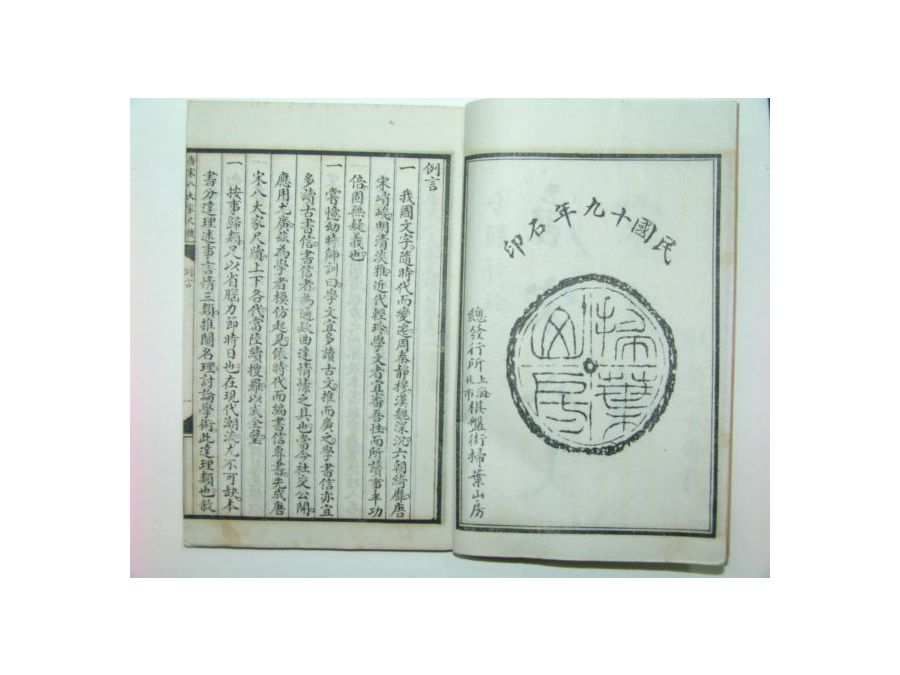 民國十九年石印
掃葉山房
總發行所上海北市棋盤街掃葉山房
例言
一 我國文字。隨時代而變遷。周秦靜穆。漢魏深沉。六朝綺靡。唐
宋峭峻。明清淡雅。近代輕玲。學文者宜審吾性而所讀。事半功
倍。固無疑義也。
一 嘗憶幼時師訓曰。學文宜多讀古文。推而廣之。學書信亦宜
多讀古書信。書信者為通款曲達情愫之具也。當今社交公開。
應用尤廣。茲為學者模仿起見。依時代而編書信專書。先成唐
宋八大家尺牘。上下各代當陸續搜羅。以成全璧。
一 按事歸類。足以省腦力節時日也。在現代潮流。尤不可缺。本
書分達理述事言情三類。推闡名理。討論學術。此達理類也。敘
唐宋八大家尺牘 例言 一